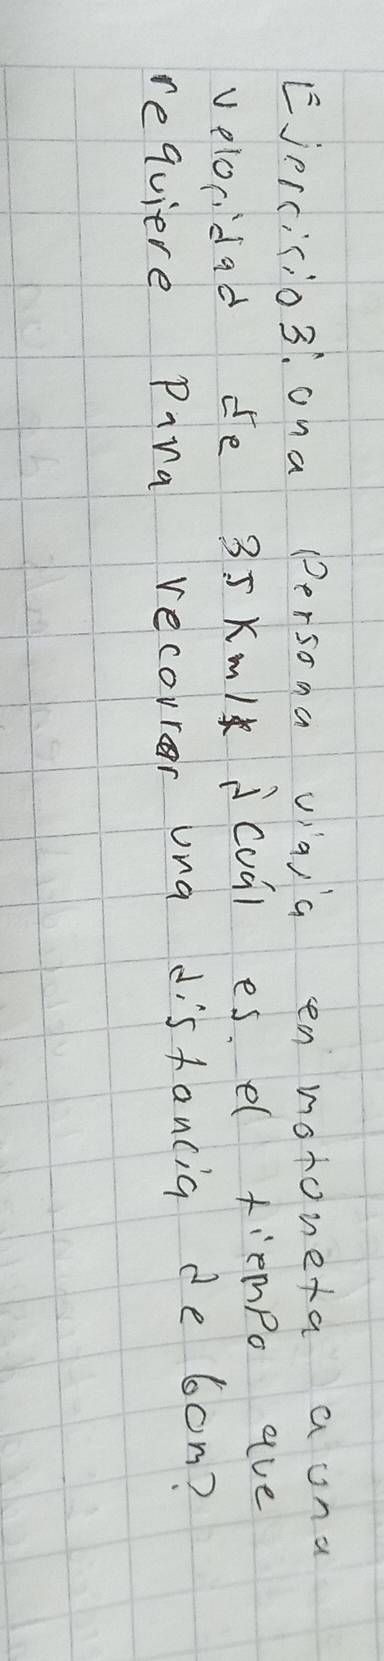 Ejercicio 3: una Persona viaja en motoneta a una
velocidad de 35 Km/ ¿Cuál es el tiempo que
requiere para recorrer una distancia de 60m?